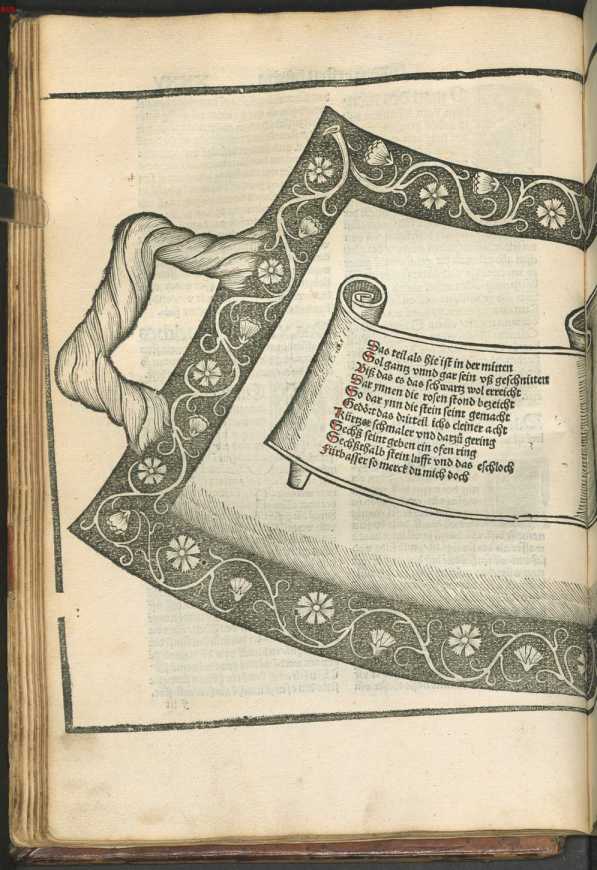 Das teil als Hie ist in der mitten
Sol gantz vnnd gar sein vß geschnitten
Biß das es das schwartz wol erreicht
Dar ynnen die rosen stond bezeicht
So dar ynn die stein seint gemacht
Gedört das dritteil ichs cleiner acht
Kürtzer schmaler vnd darzů gering
Sechß seint geben ein ofen ring
Sechßthalb stein lufft vnd das eschloch
Fürbasser so merck du mich doch